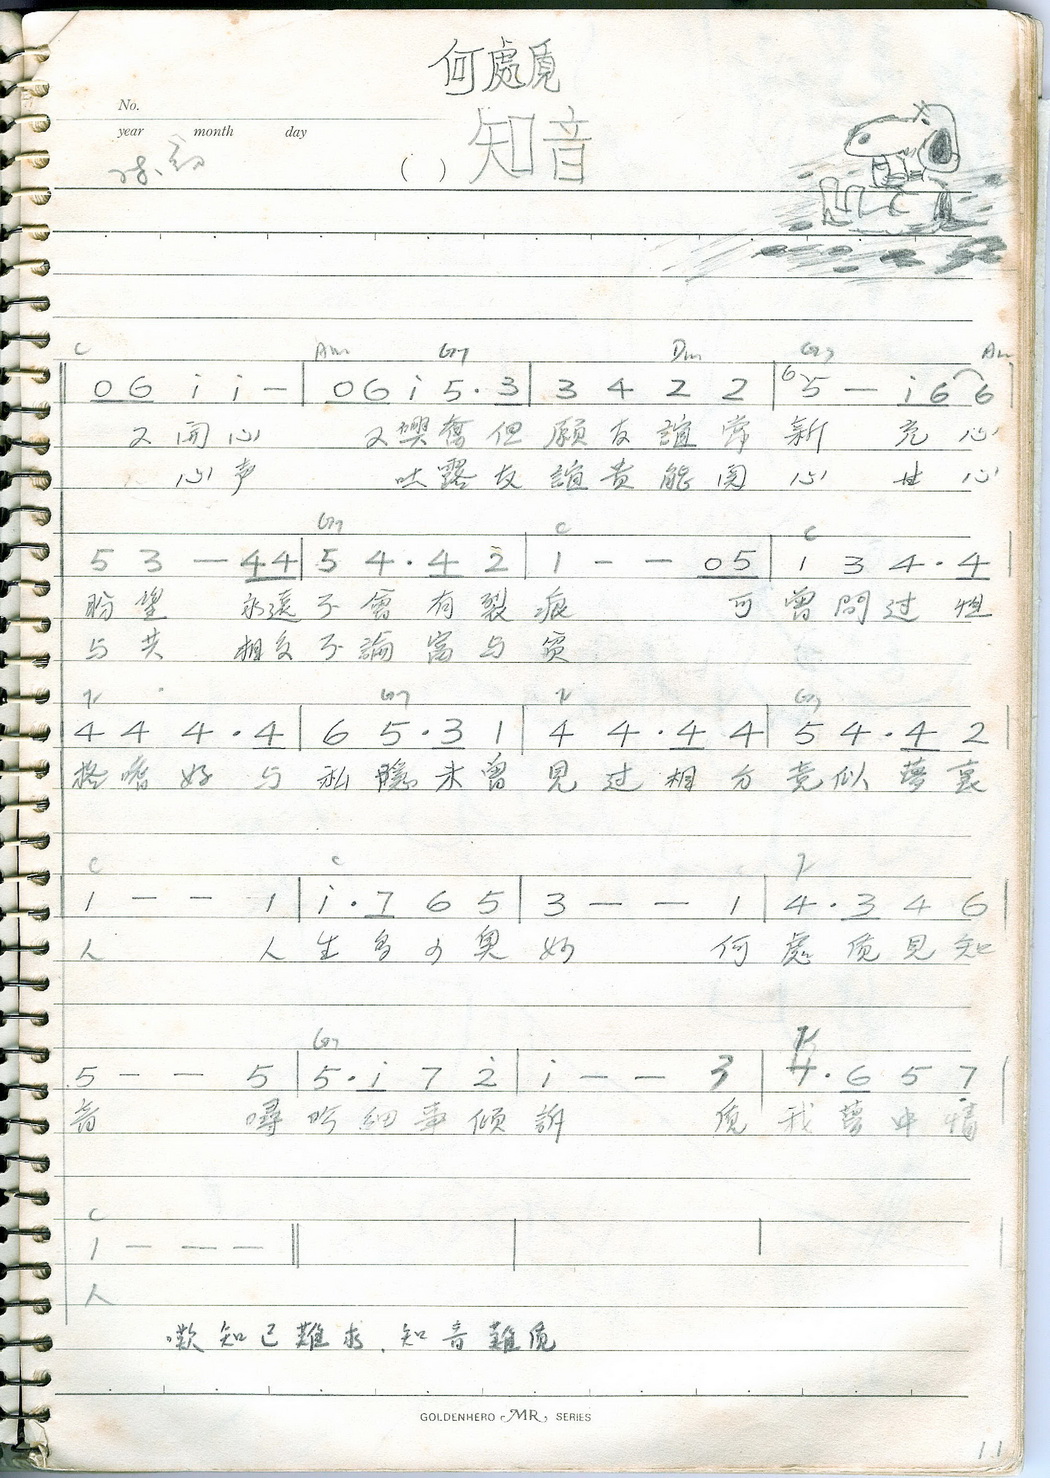 何處覓
No.
year month day
( ) 知音
C Am G7 Dm G7 Am
0 6 i i - | 0 6 i 5 · 3 | 3 4 2 2 | 6 5 - i 6 6 |
又開心 又興奮但願友誼常新 充心
心声 吐露友誼貴能関心 甘心
G7 C C
5 3 - 4 4 | 5 4 · 4 2 | 1 - - 0 5 | 1 3 4 · 4 |
盼望 永遠不會有裂痕 可曾問过性
与共 相交不論富与貧
F G7 F G7
4 4 4 · 4 | 6 5 · 3 1 | 4 4 · 4 4 | 5 4 · 4 2 |
格嗜好与私隱未曾見过相分竟似夢裏
C C F
1 - - 1 | i · 7 6 5 | 3 - - 1 | 4 · 3 4 6 |
人 人生多少奥妙 何處覓見知
G7 F
5 - - 5 | 5 · i 7 2 | i - - 3 | 4 · 6 5 7 |
音 尋吟細事傾訴 覓我夢中情
C
1 - - - ||
人
歎知己難求.知音難覓
GOLDENHERO MR, SERIES
11